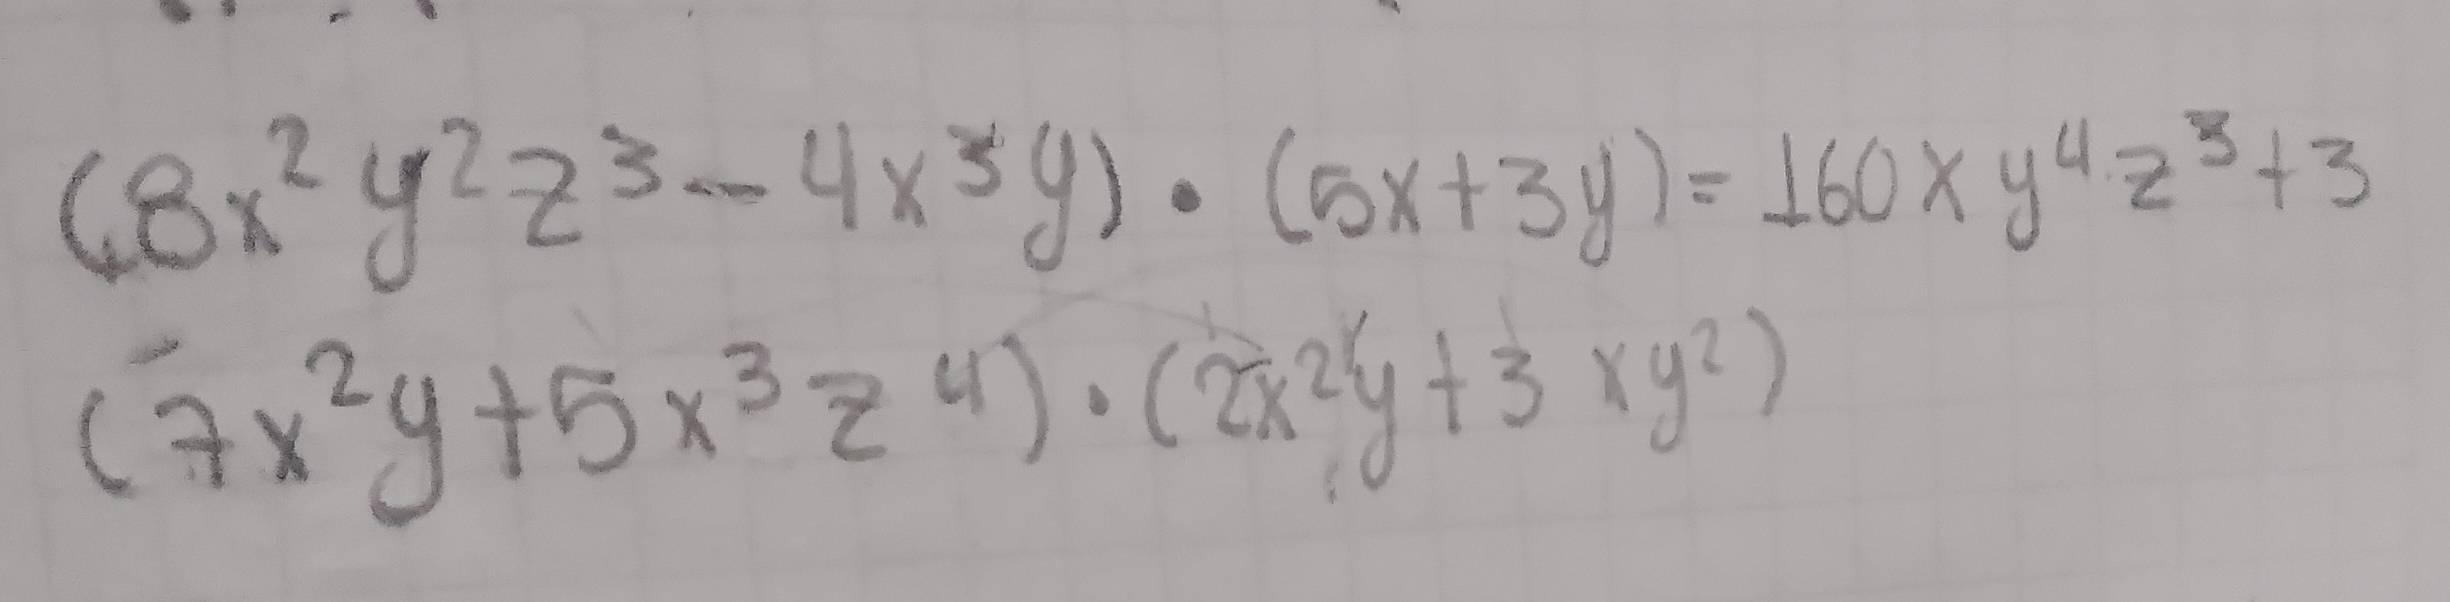 (8x²y²z³-4x³y)·(5x+3y)=160xy⁴z³+3
(7x²y+5x³z⁴)·(2x²y+3xy²)